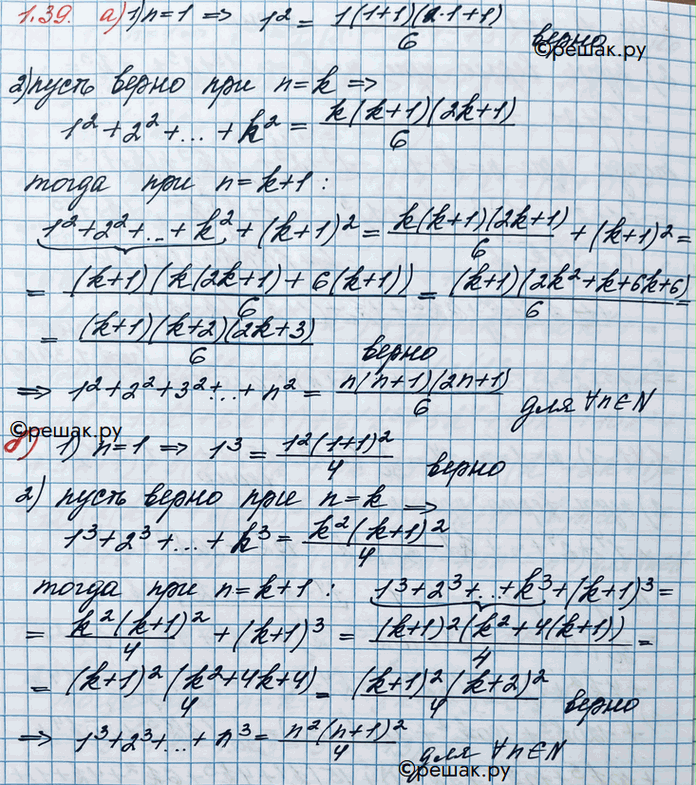 1.39. а) 1) n=1 ⇒ 1² = 1(1+1)(2·1+1)/6 верно
©решак.ру
2) пусть верно при n=k ⇒
1²+2²+...+k² = k(k+1)(2k+1)/6
тогда при n=k+1:
1²+2²+...+k²+(k+1)² = k(k+1)(2k+1)/6 + (k+1)² =
= (k+1)(k(2k+1)+6(k+1))/6 = (k+1)(2k²+k+6k+6)/6 =
= (k+1)(k+2)(2k+3)/6 верно
⇒ 1²+2²+3²+...+n² = n(n+1)(2n+1)/6 для ∀n∈N
©решак.ру
б) 1) n=1 ⇒ 1³ = 1²(1+1)²/4 верно
2) пусть верно при n=k ⇒
1³+2³+...+k³ = k²(k+1)²/4
тогда при n=k+1: 1³+2³+...+k³+(k+1)³ =
= k²(k+1)²/4 + (k+1)³ = (k+1)²(k²+4(k+1))/4 =
= (k+1)²(k²+4k+4)/4 = (k+1)²(k+2)²/4 верно
⇒ 1³+2³+...+n³ = n²(n+1)²/4 для ∀n∈N
©решак.ру